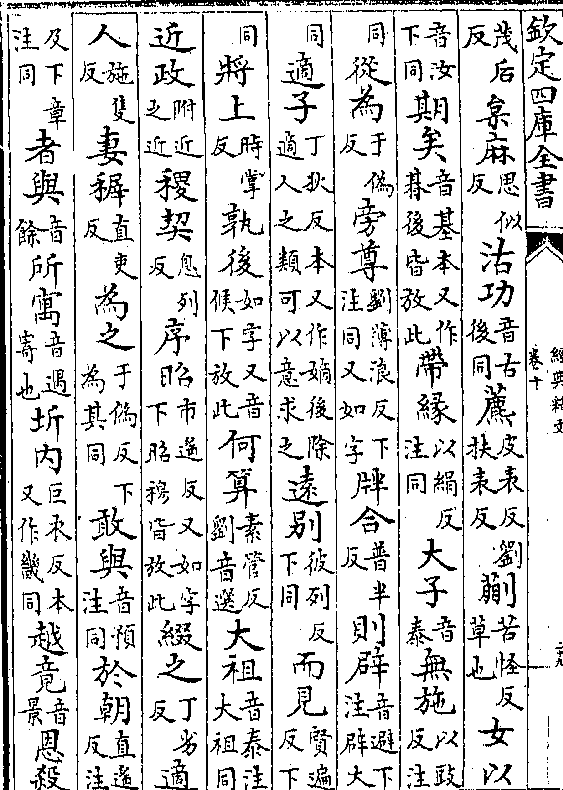 欽定四庫全書
經典釋文
卷十
茂后反枲麻思似反沽功音古後同藨皮表反劉扶表反蒯苦怪反草也女以
音汝下同期矣音基本又作朞後皆放此帶緣以絹反注同大子音泰無施以豉反注
同從為于偽反旁尊劉薄浪反下注同又如字牉合普半反則辟音避下注辟大
同適子丁狄反本又作嫡後除適人之類可以意求之遠別彼列反下同而見賢遍反下
同將上時掌反孰後如字又音候下放此何算素管反劉音選大祖音泰注大祖同
近政附近之近稷契息列反序昭市遥反又如字下昭穆皆放此綴之丁劣反適
人施隻反妻稺直吏反為之于偽反下為其同敢與音預注同於朝直遥反注
及下章注同者與音餘所寓音遇寄也圻内巨衣反本又作畿同越竟音景恩殺